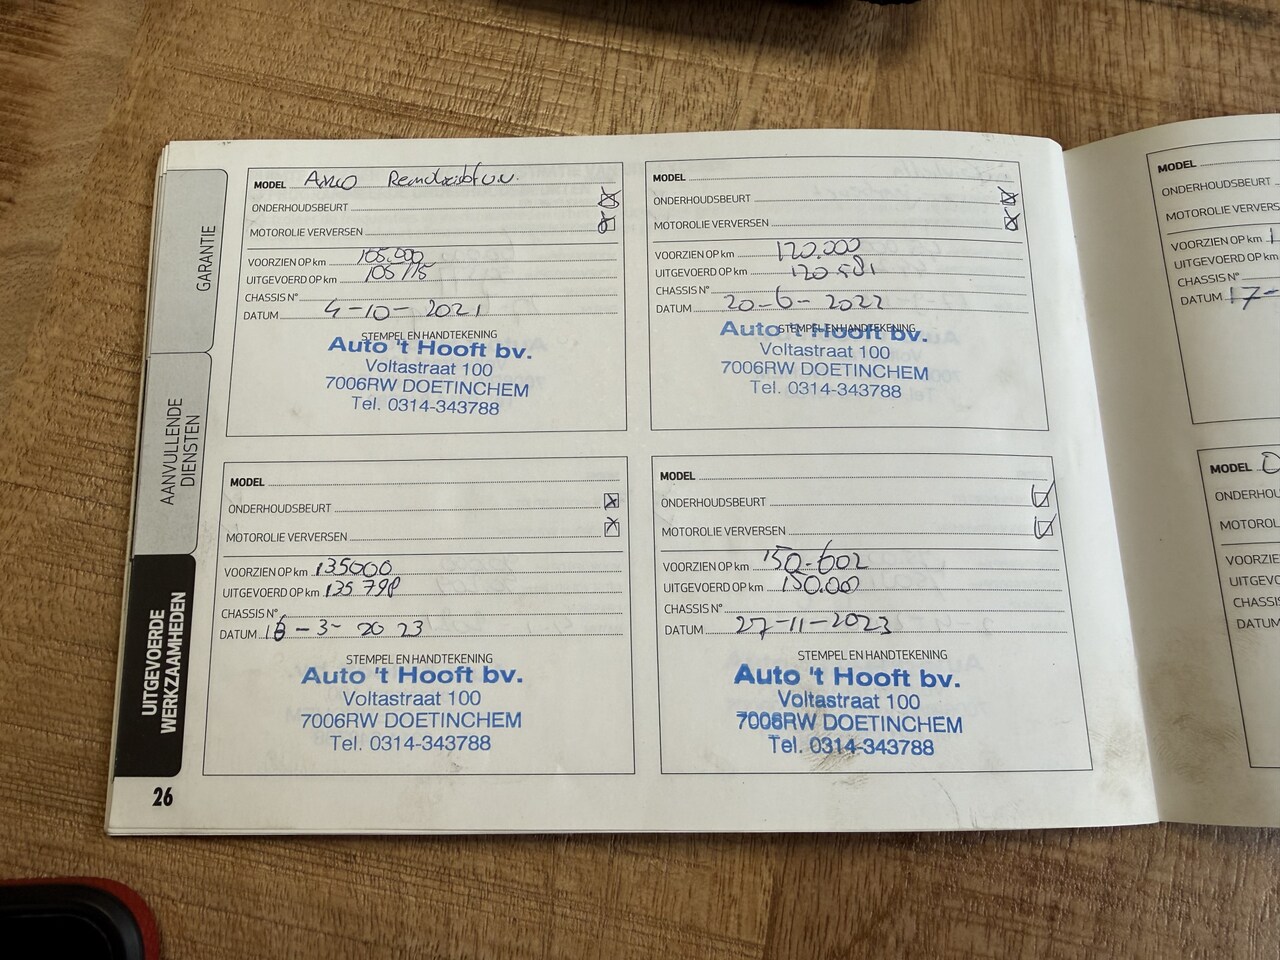 GARANTIE
AANVULLENDE
DIENSTEN
UITGEVOERDE
WERKZAAMHEDEN
26
MODEL
ONDERHOUDSBEURT
MOTOROLIE VERVERSEN
VOORZIEN OP km 105.000
UITGEVOERD OP km 105 115
CHASSIS N°
DATUM 4-10-2021
STEMPEL EN HANDTEKENING
Auto 't Hooft bv.
Voltastraat 100
7006RW DOETINCHEM
Tel. 0314-343788
MODEL
ONDERHOUDSBEURT
MOTOROLIE VERVERSEN
VOORZIEN OP km 120.000
UITGEVOERD OP km 120.581
CHASSIS N°
DATUM 20-6-2022
STEMPEL EN HANDTEKENING
Auto 't Hooft bv.
Voltastraat 100
7006RW DOETINCHEM
Tel. 0314-343788
MODEL
ONDERHOUDSBEURT
MOTOROLIE VERVERSEN
VOORZIEN OP km 135000
UITGEVOERD OP km 135 798
CHASSIS N°
DATUM 16-3-2023
STEMPEL EN HANDTEKENING
Auto 't Hooft bv.
Voltastraat 100
7006RW DOETINCHEM
Tel. 0314-343788
MODEL
ONDERHOUDSBEURT
MOTOROLIE VERVERSEN
VOORZIEN OP km 150.602
UITGEVOERD OP km 150.00
CHASSIS N°
DATUM 27-11-2023
STEMPEL EN HANDTEKENING
Auto 't Hooft bv.
Voltastraat 100
7006RW DOETINCHEM
Tel. 0314-343788
MODEL
ONDERHOUDSBEURT
MOTOROLIE VERVERS
VOORZIEN OP km
UITGEVOERD OP km
CHASSIS N°
DATUM 17-
MODEL
ONDERHOUDSB
MOTOROLIE
VOORZIE
UITGEVO
CHASSIS
DATUM